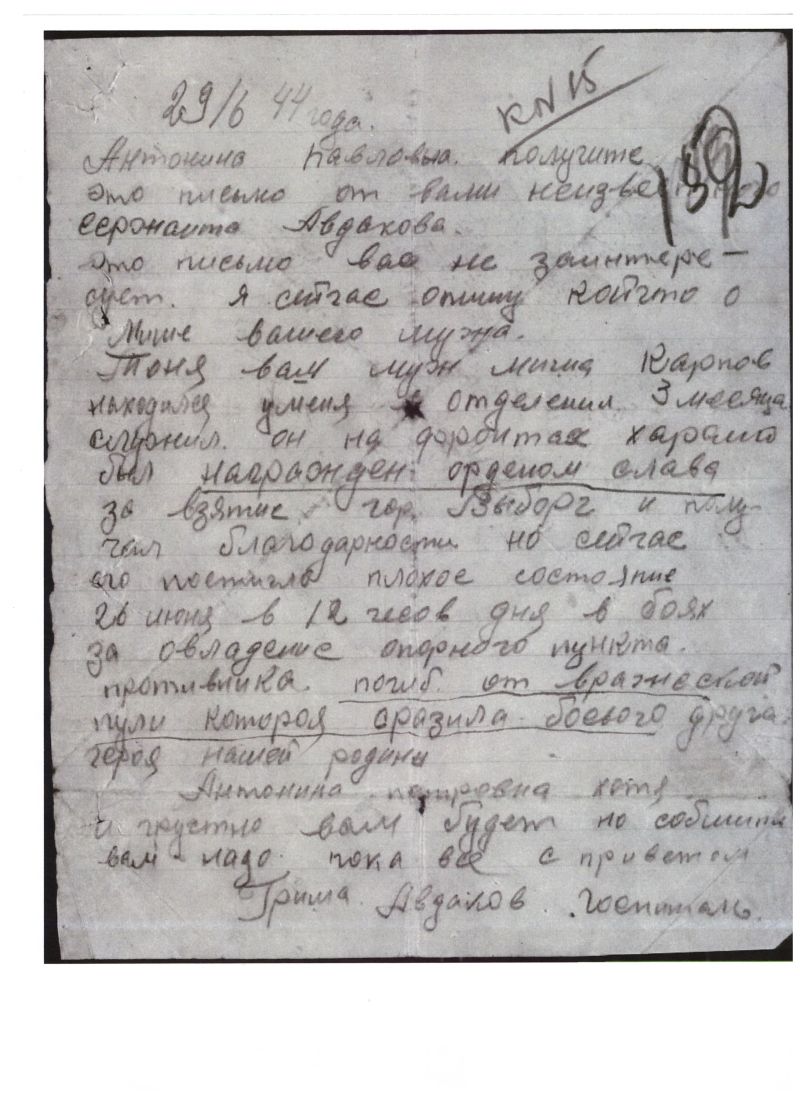 29/6 44 года.
КП 15
Антонина Павловна. получите
это письмо от вами неизвестного
сержанта Авдакова.
это письмо вас не заинтере-
сует. Я сейчас опишу койчто о
Мише вашего мужа.
Тоня вам муж миша Карпов
находился уменя в отделении. 3 месяца
служил. он на фронтах хорошо
был награжден орденом слава
за взятие гор. Выборг и полу-
чал благодарности но сейчас
его постигло плохое состояние
26 июня в 12 чесов дня в боях
за овладение опорного пункта.
противника. погиб. от вражеской
пули которая сразила боевого друга
героя нашей родины
Антонина петровна хотя
и грустно вам будет но собщить
вам надо пока все с приветом
Гриша. Авдаков. госпиталь.